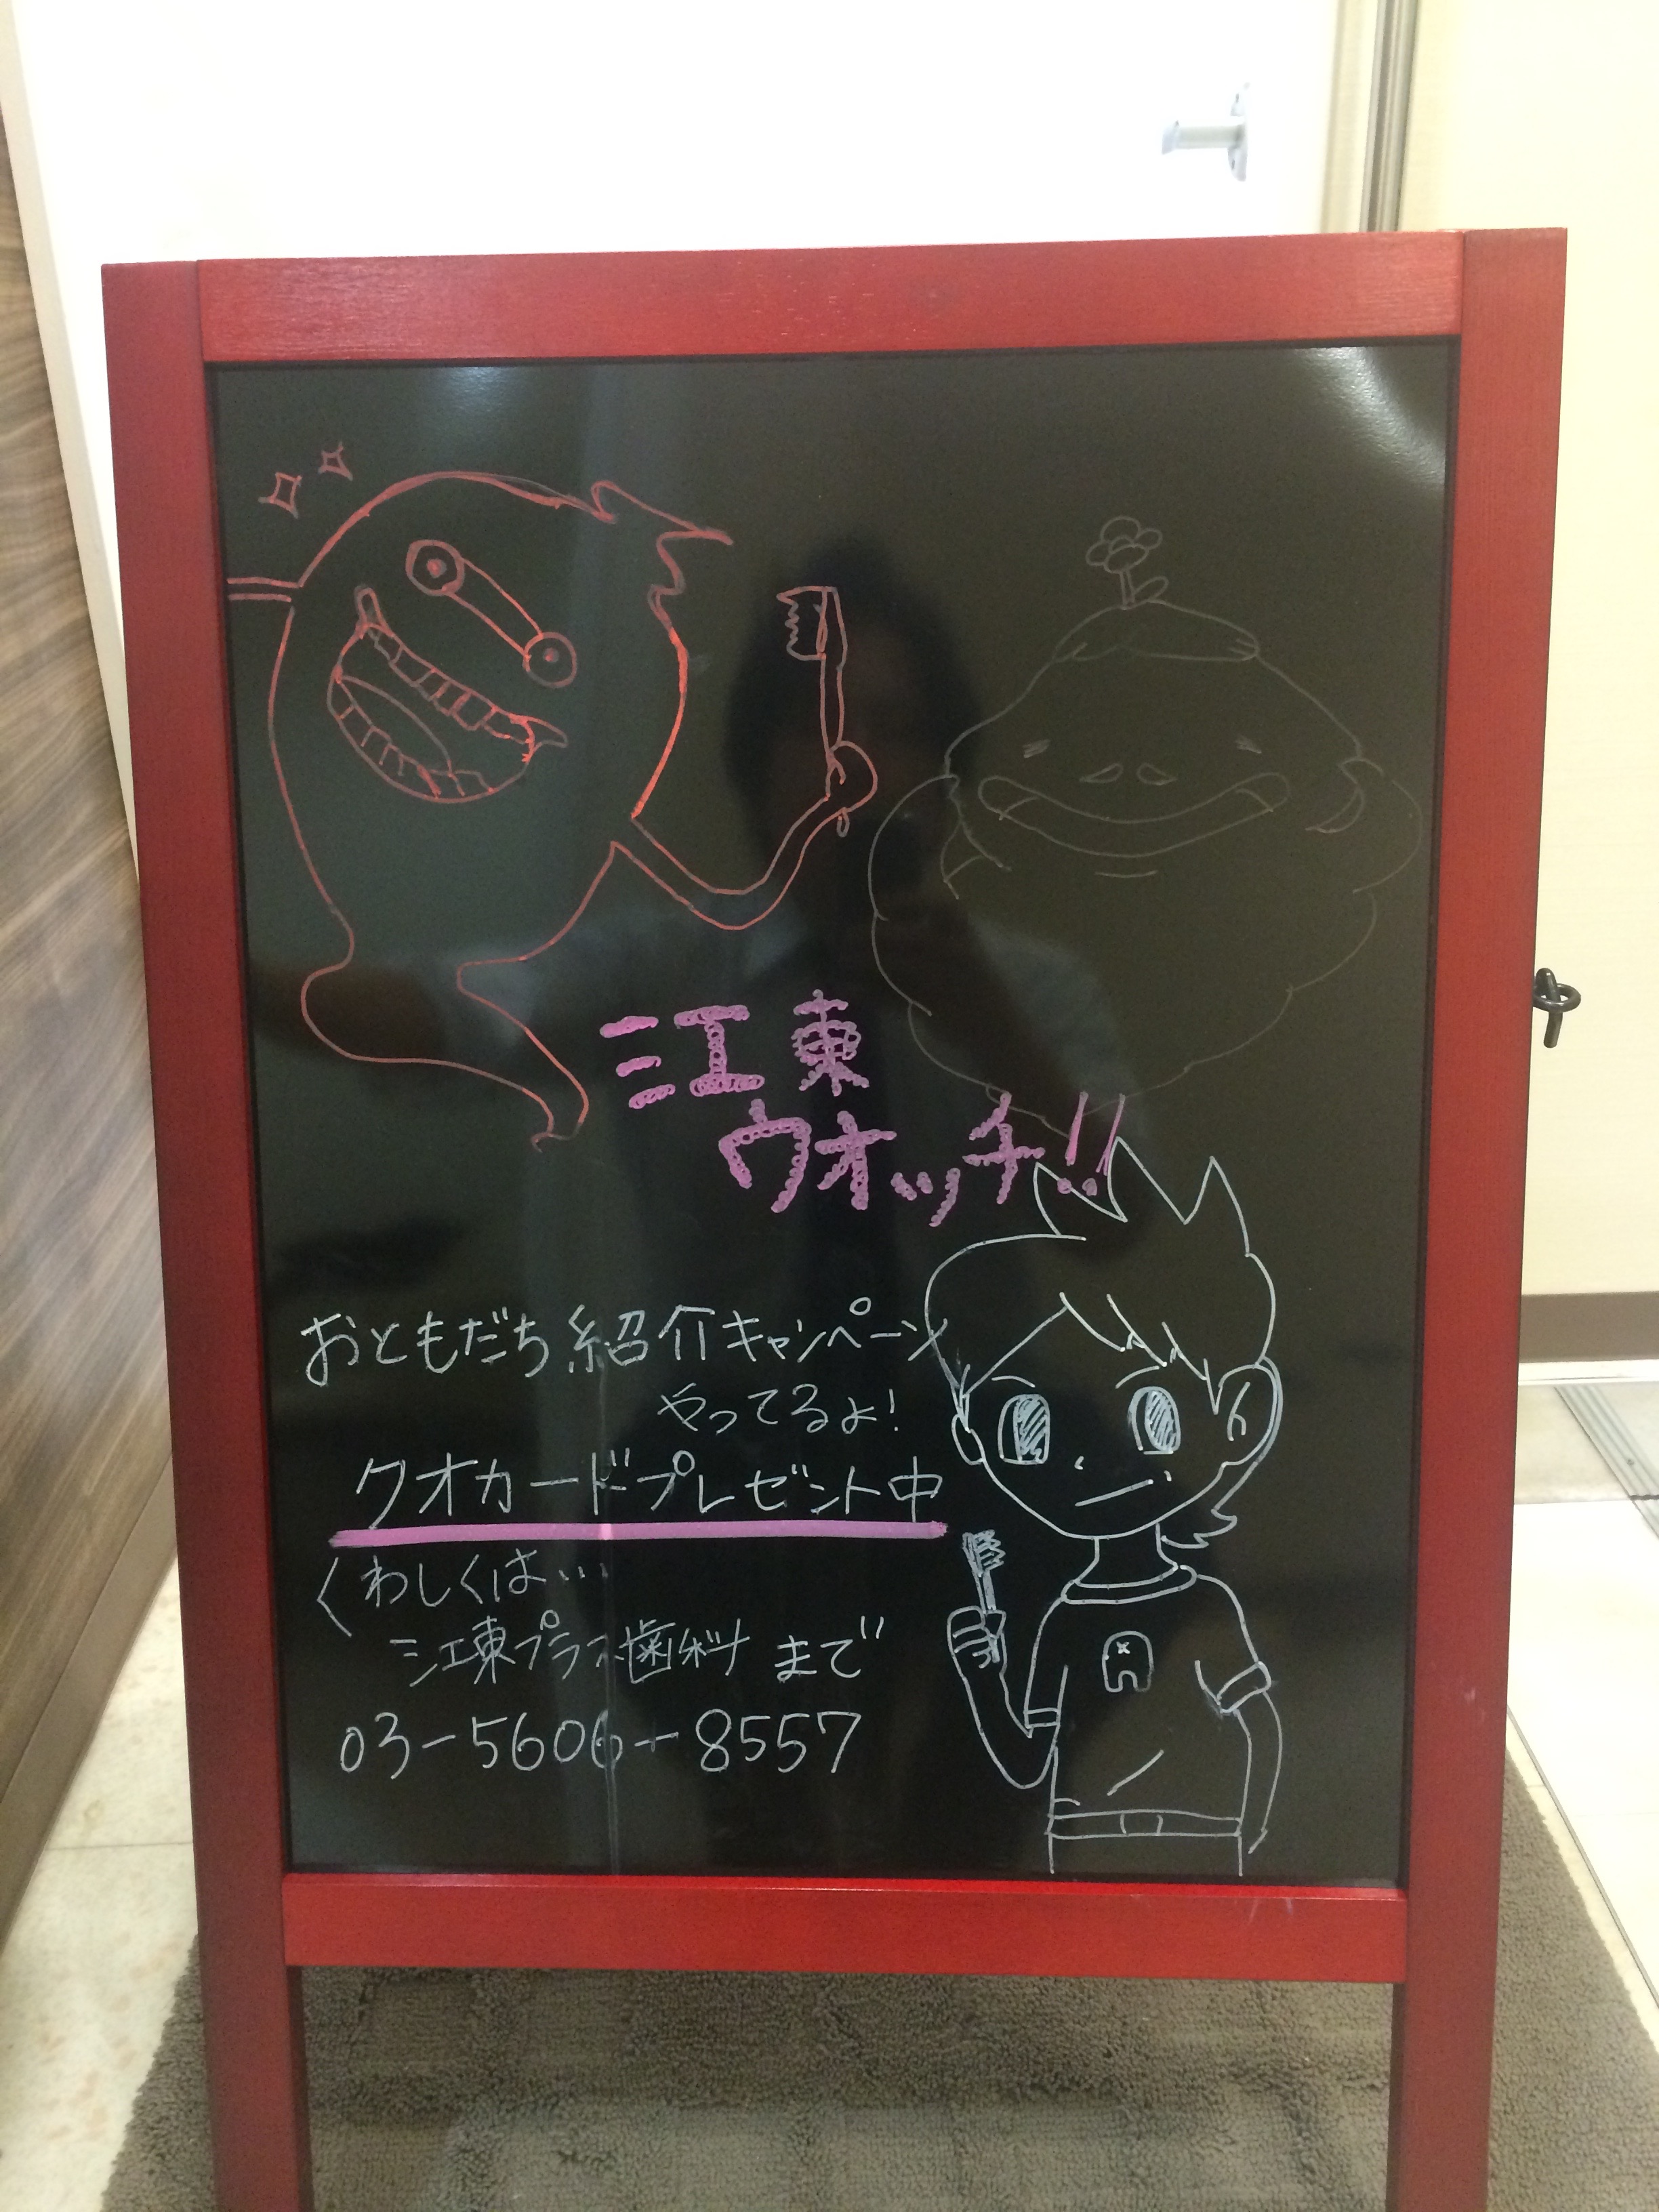 江東
ウオッチ!!
おともだち紹介キャンペーン
やってるよ!
クオカードプレゼント中
くわしくは…
江東プラス歯科まで
03-5606-8557